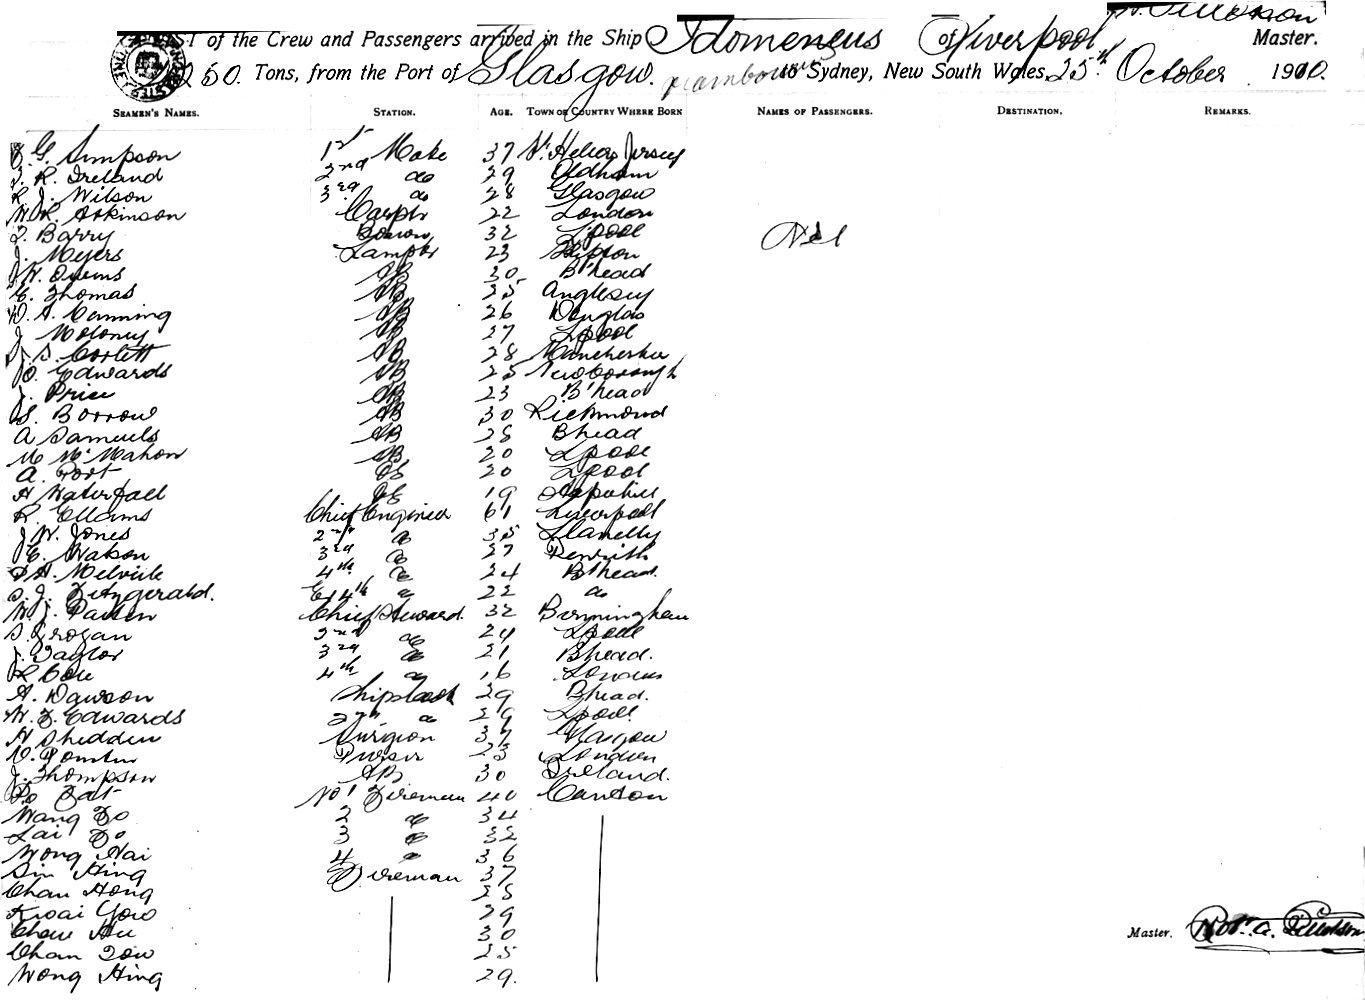 LIST of the Crew and Passengers arrived in the Ship Idomeneus of Liverpool Master.
Tons, from the Port of Glasgow. to Sydney, New South Wales, 25th October 1910.
SEAMEN'S NAMES. STATION. AGE. TOWN OR COUNTRY WHERE BORN NAMES OF PASSENGERS. DESTINATION. REMARKS.
G. Simpson 1st Mate 37 St Heliers Jersey
R. Ireland 2nd do 29 Oldham
R. J. Wilson 3rd do 28 Glasgow
W. R. Atkinson Carptr 22 London
Barry Bosun 32 Lpool
J. Meyers Lamptr 23
Nil
W. Owens AB 30 B'head
E. Thomas AB 25 Anglesey
D. A. Canning AB 26 Douglas
J. Moloney AB 27 Lpool
J. S. Corlett AB 28 Manchester
O. Edwards AB 25 Newborough
J. Price AB 23 B'head
S. Borrow AB 30 Richmond
A Samuels AB 28 Bhead
M McMahon AB 20 Lpool
A. Port OS 20 Lpool
H Waterfall OS 19
R. Ellams Chief Engineer 61 Liverpool
J. W. Jones 2nd do 35 Llanelly
E. Watson 3rd do 27 Penrith
A. Melville 4th do 24 B'head.
J. Fitzgerald. 4th do 22 do
W. J. Chief Steward. 32 Birmingham
S. Grogan 2nd do 24 Lpool
J. Taylor 3rd do 21 Bhead.
R Cole 4th do 16
A. Dawson Ships Cook 29 Bhead.
W. J. Edwards 2nd do 29 Lpool.
H Shedden Surgeon 37 Glasgow
Purser 23 London
J. Thompson AB 30 Ireland.
Fat No 1 Fireman 40 Canton
Wang Fo 2 do 34
Lai Fo 3 do 32
Wong Nai 4 do 36
Sin Hing Fireman 37
Chan Hong 28
Kwai Yow 29
Chow 30
Master.
Chan 25
Wong Hing 29.